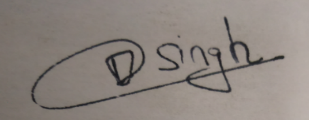 D Singh